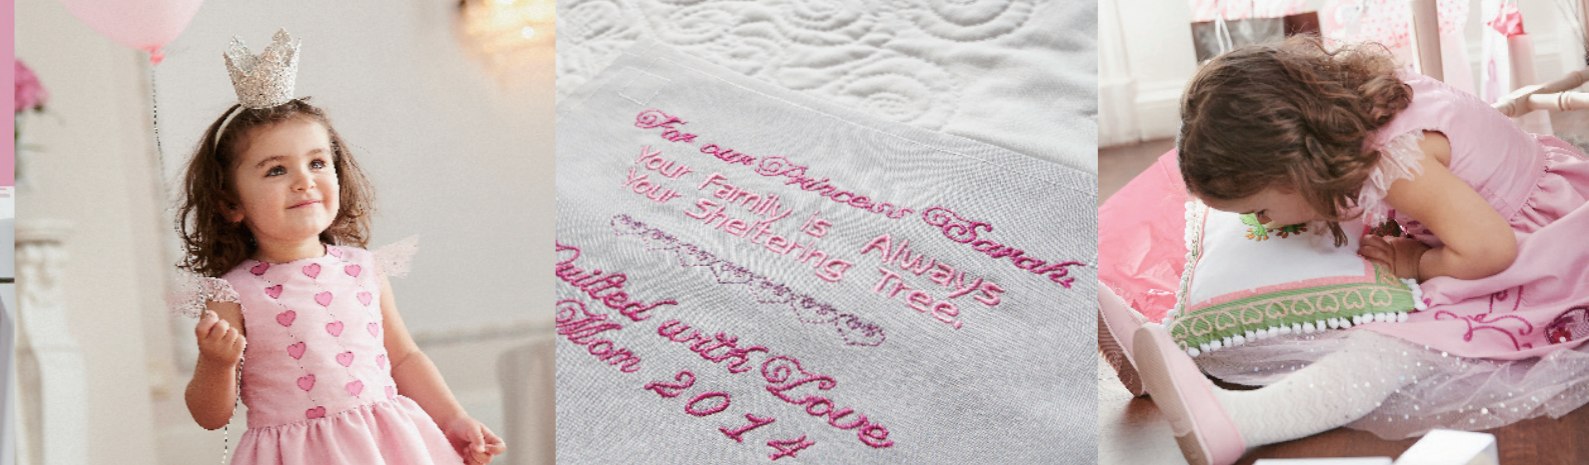 For our Princess Sarah,
Your Family is Always
Your Sheltering Tree.
Quilted with Love
Mom 2014